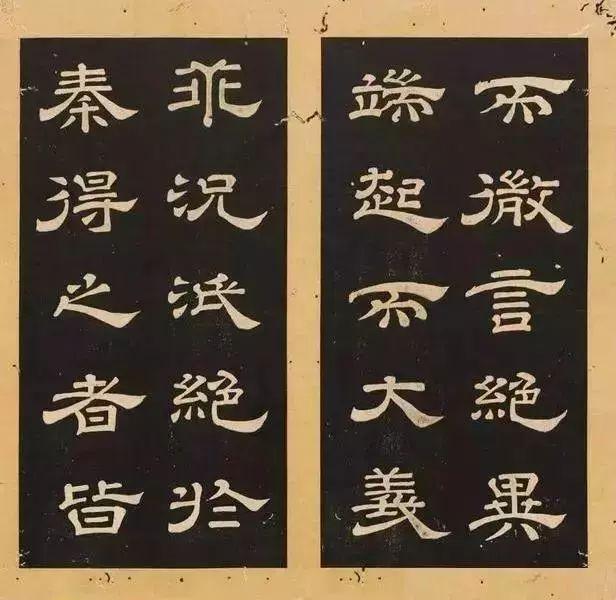 而微言絕異
端起而大義
乖況泯絕於
秦得之者皆